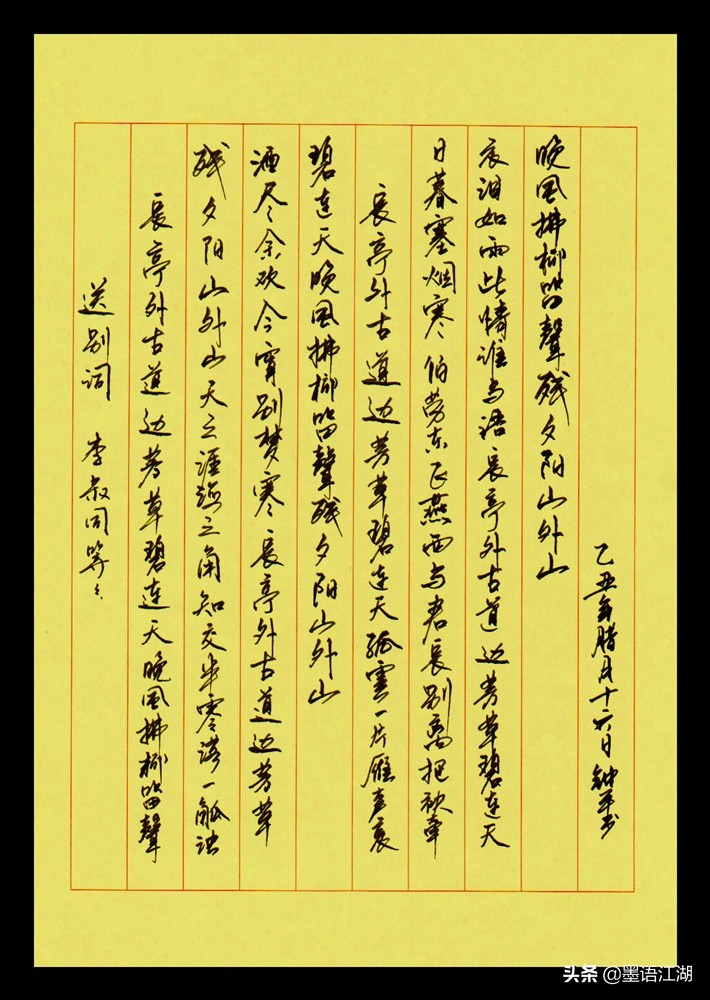 送别词 李叔同等
長亭外古道边芳草碧连天晚风拂柳笛聲
残夕阳山外山天之涯海之角知交半零落一觚浊
酒尽余欢今宵别梦寒長亭外古道边芳草
碧连天晚风拂柳笛聲残夕阳山外山
長亭外古道边芳草碧连天孤雲一片雁声哀
日暮塞烟寒伯劳东飞燕西与君長别离把袂牵
衣泪如雨此情谁与语長亭外古道边芳草碧连天
晚风拂柳笛聲残夕阳山外山
乙丑年腊月十六日
头条@墨语江湖